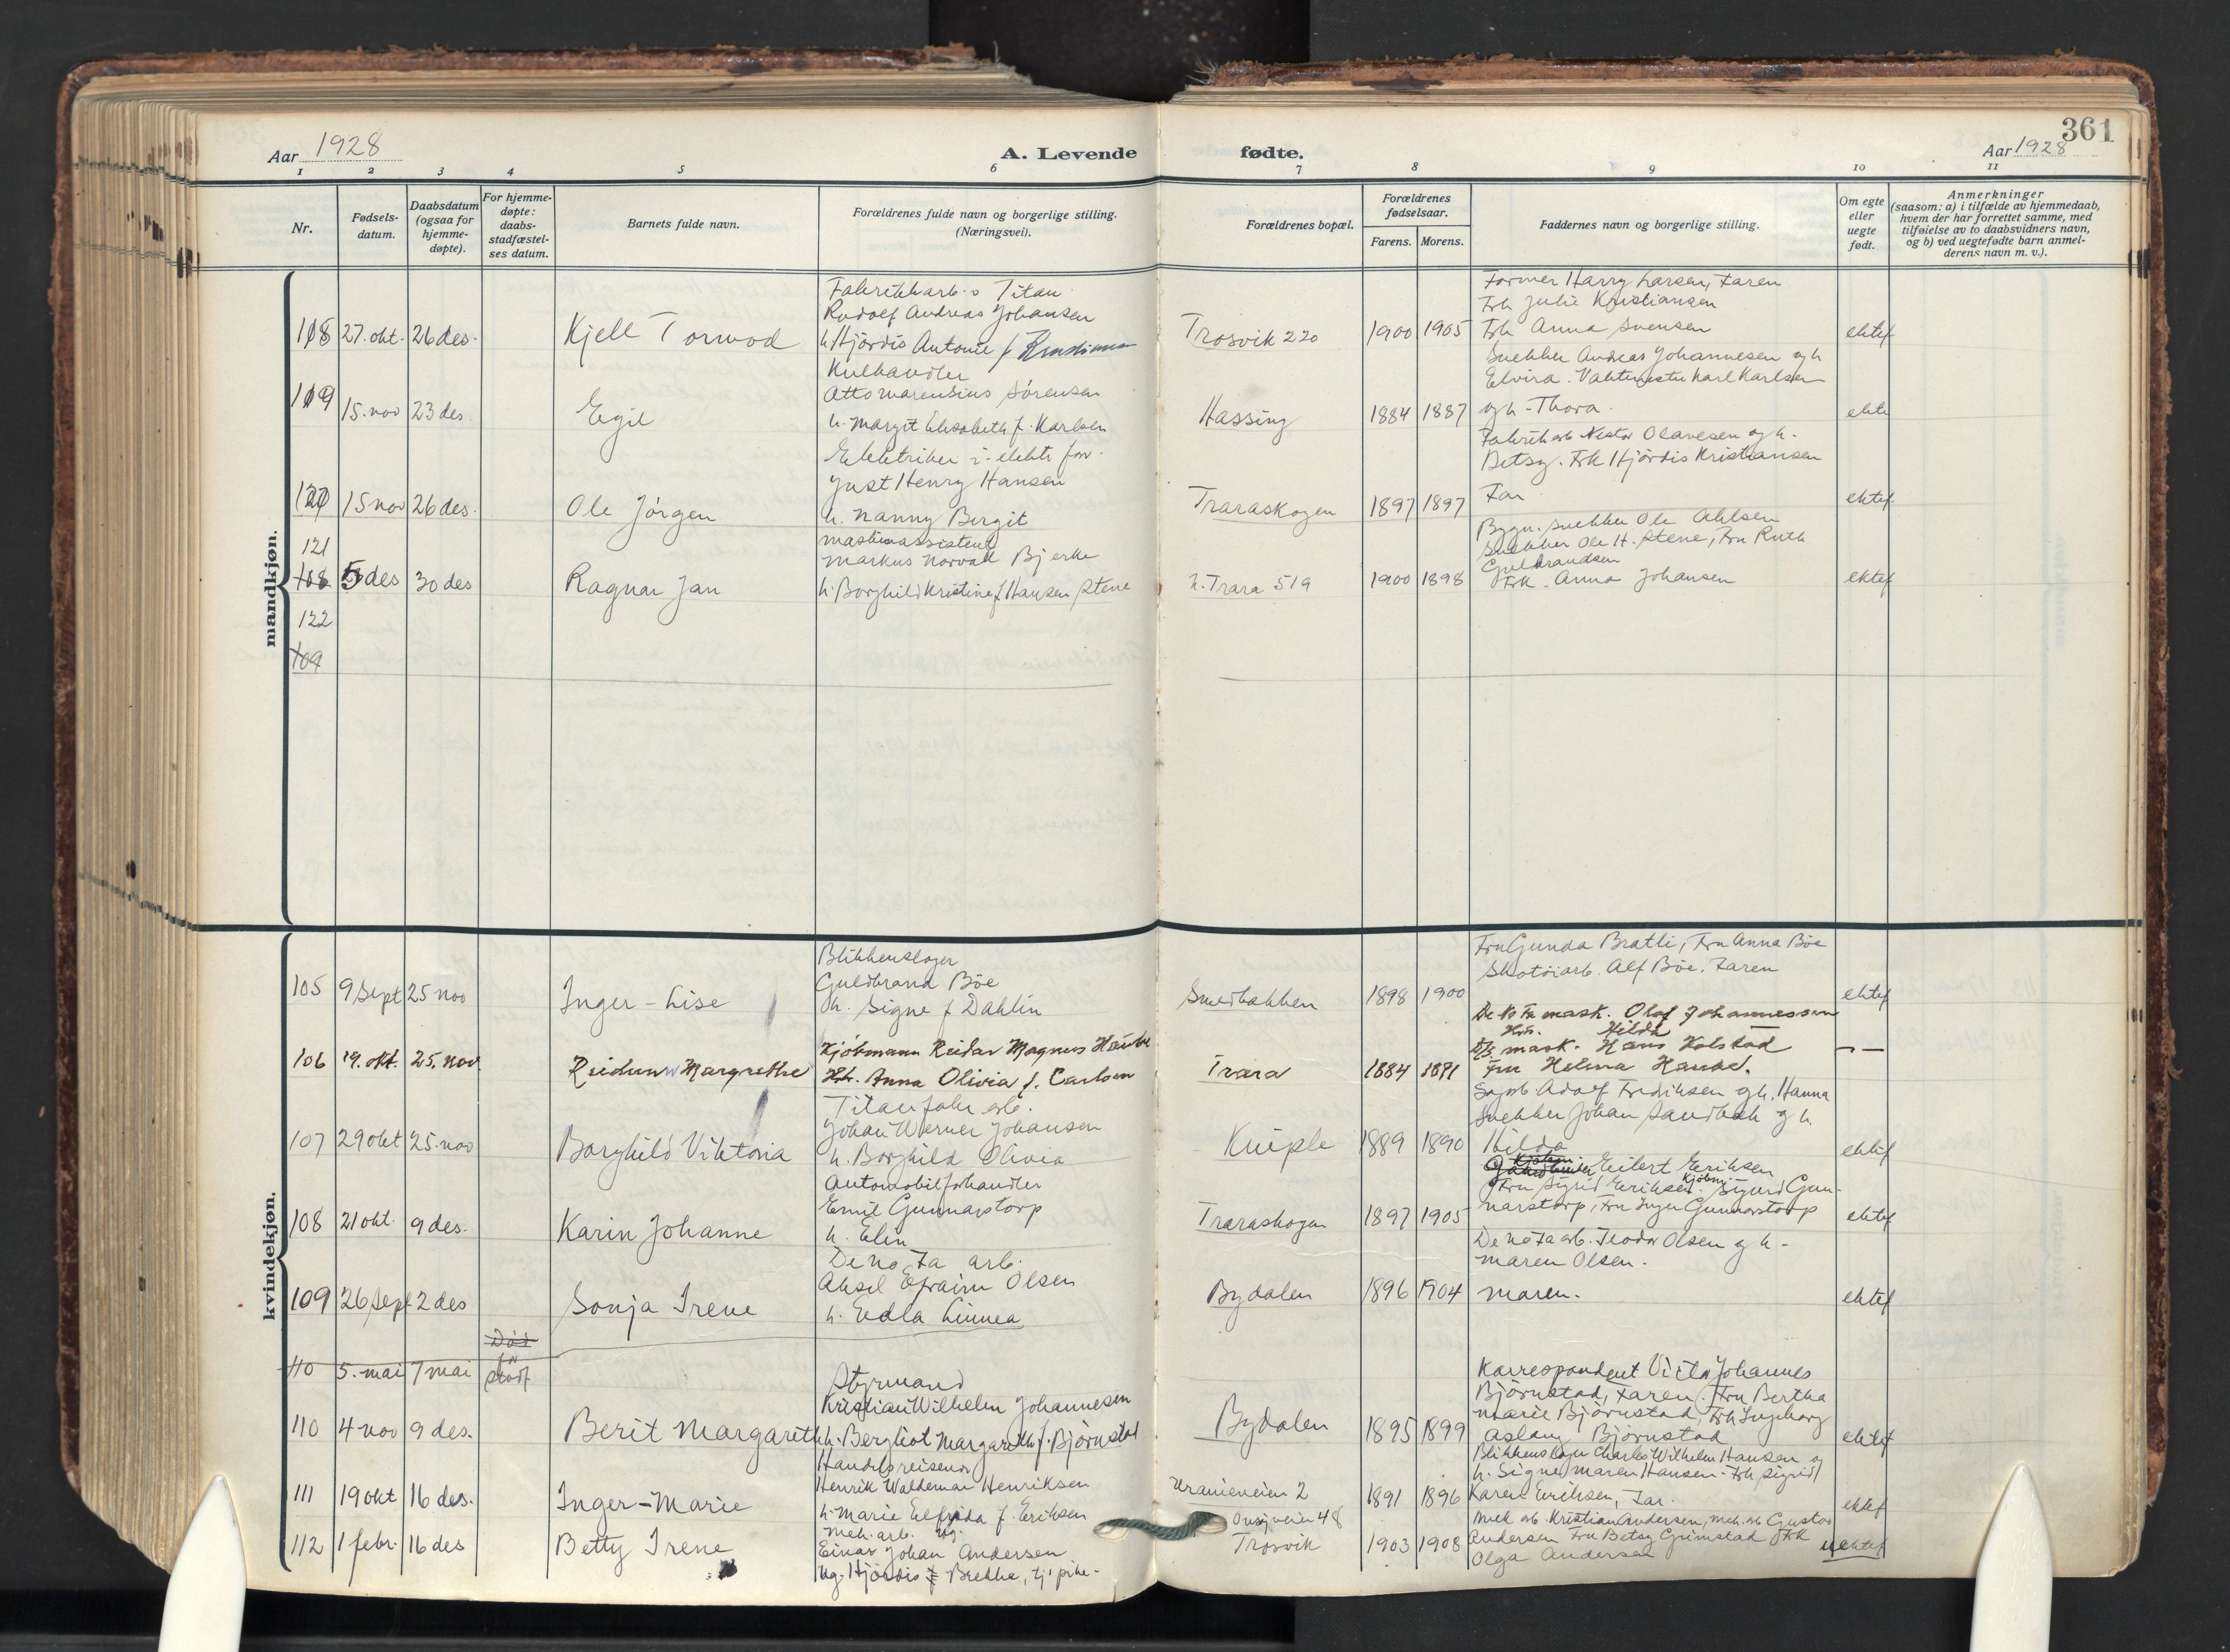 361
Aar 1928
A. Levende
fødte.
Aar 1928
1 2 3 4 5 6 7 8 9 10 11
Nr.
Fødsels-
datum.
Daabsdatum
(ogsaa for
hjemme-
døpte).
For hjemme-
døpte:
daabs-
stadfæstel-
ses datum.
Barnets fulde navn.
Forældrenes fulde navn og borgerlige stilling.
(Næringsvei).
Forældrenes bopæl.
Forældrenes
fødselsaar.
Farens. Morens.
Faddernes navn og borgerlige stilling.
Om egte
eller
uegte
født.
Anmerkninger
(saasom: a) i tilfælde av hjemmedaab,
hvem der har forrettet samme, med
tilføielse av to daabsvidners navn,
og b) ved uegtefødte barn anmel-
derens navn m. v.).
mandkjøn.
118 27. okt. 26 des. Kjell Tormod
Fabrikkarb. Titan
Rudolf Andreas Johansen
h. Hjördis Antonie f
Trosvik 220 1900 1905
Former Harry Larsen, Faren
Frk Julie Kristiansen
Frk Anna Svensen
ektef
119 15. nov 23 des Egil
Otto Marensius Sörensen
h. Margit Elisabeth f. Karlsen
Hassing 1884 1887
Snekker Andreas Johannesen og h
Elvira. Vaktmester Karl Karlsen
og h - Thora.
ekte
120 15 nov 26 des. Ole Jörgen
Elektriker i elektr. forr.
Just Henry Hansen
h. Nanny Bergit
Traraskogen 1897 1897
Fabrikarb Nestor Olavesen og h.
Betsy. Frk Hjördis Kristiansen
Far
ektef
121
108 5 des 30 des Ragnar Jan
Maskinassistent
Markus Norvald Bjerke
h. Borghild Kristine f Hansen Stene
N. Trara 519 1900 1898
Bygn. snekker Ole Ahlsen
Snekker Ole H. Stene, Fru Ruth
Gulbrandsen
Frk. Anna Johansen
ektef
122
109
kvindekjøn.
105 9 Sept 25 nov Inger-Lise
Blikkenslager
Guldbrand Böe
h. Signe f Dahlin
Smedbakken 1898 1900
Fru Gunda Bratli, Fru Anna Böe
Skotöiarb. Alf Böe. Faren
ektef
106 19. okt. 25. nov. Reidunn Margrethe
Kjöbmann Reidar Magnus
Hst. Anna Olivia f. Carlsen
Trara 1884 1891
De No Fa mask. Olaf Johannessen
Hst. Hilda
mask. Hans Holstad
Fru Helma
107 29 okt 25. nov Borghild Viktoria
Titan fabr arb.
Johan Werner Johansen
h. Borghild Olivia
Kniple 1889 1890
Adolf Fredriksen og h. Hanna
Snekker Johan Sandbæk og h.
Hilda
ektef
108 21 okt. 9 des. Karin Johanne
Automobilforhandler
Emil Gunnarstorp
h. Elin
Traraskogen 1897 1905
Eilert Eriksen
Fru Sigrid Eriksen. Kjöbm. Sigurd Gun-
narstorp, Fru Inger Gunnarstorp
ektef
109 26 sept 2 des Sonja Irene
De No Fa arb.
Aksel Efraim Olsen
h. Edla Linnea
Bydalen 1896 1904
De No Fa arb. Teodor Olsen og h -
Maren Olsen.
Maren.
ektef
110 5. mai 7 mai
Död
110 4 nov 9 des. Berit Margareth
Styrmand
Kristian Wilhelm Johannesen
h. Bergliot Margareth f. Björnstad
Bydalen 1895 1899
Korrespondent Johannes
Björnstad, Faren. Fru Bertha
Marie Björnstad, Frk Ingeborg
Aslaug Björnstad
ektef
111 19 okt 16 des. Inger-Marie
Handelsreisende
Henrik Waldemar Henriksen
h. Marie Elfrida f. Eriksen
Uranieveien 2 1891 1896
Blikkenslager Charles Wilhelm Hansen og
h. Signe Maren Hansen - Frk Sigrid
Karen Eriksen, Far.
ektef
112 1 febr. 16 des Betty Irene
Mek. arb. Ug.
Einar Johan Andersen
Ug. Hjördis Brekke, tj. pike -
Onsöyveien 48
Trosvik 1903 1908
Mek arb. Kristian Andersen, mek. arb Gustav
Andersen Fru Betsy Grimstad Frk
Olga Andersen
uektef